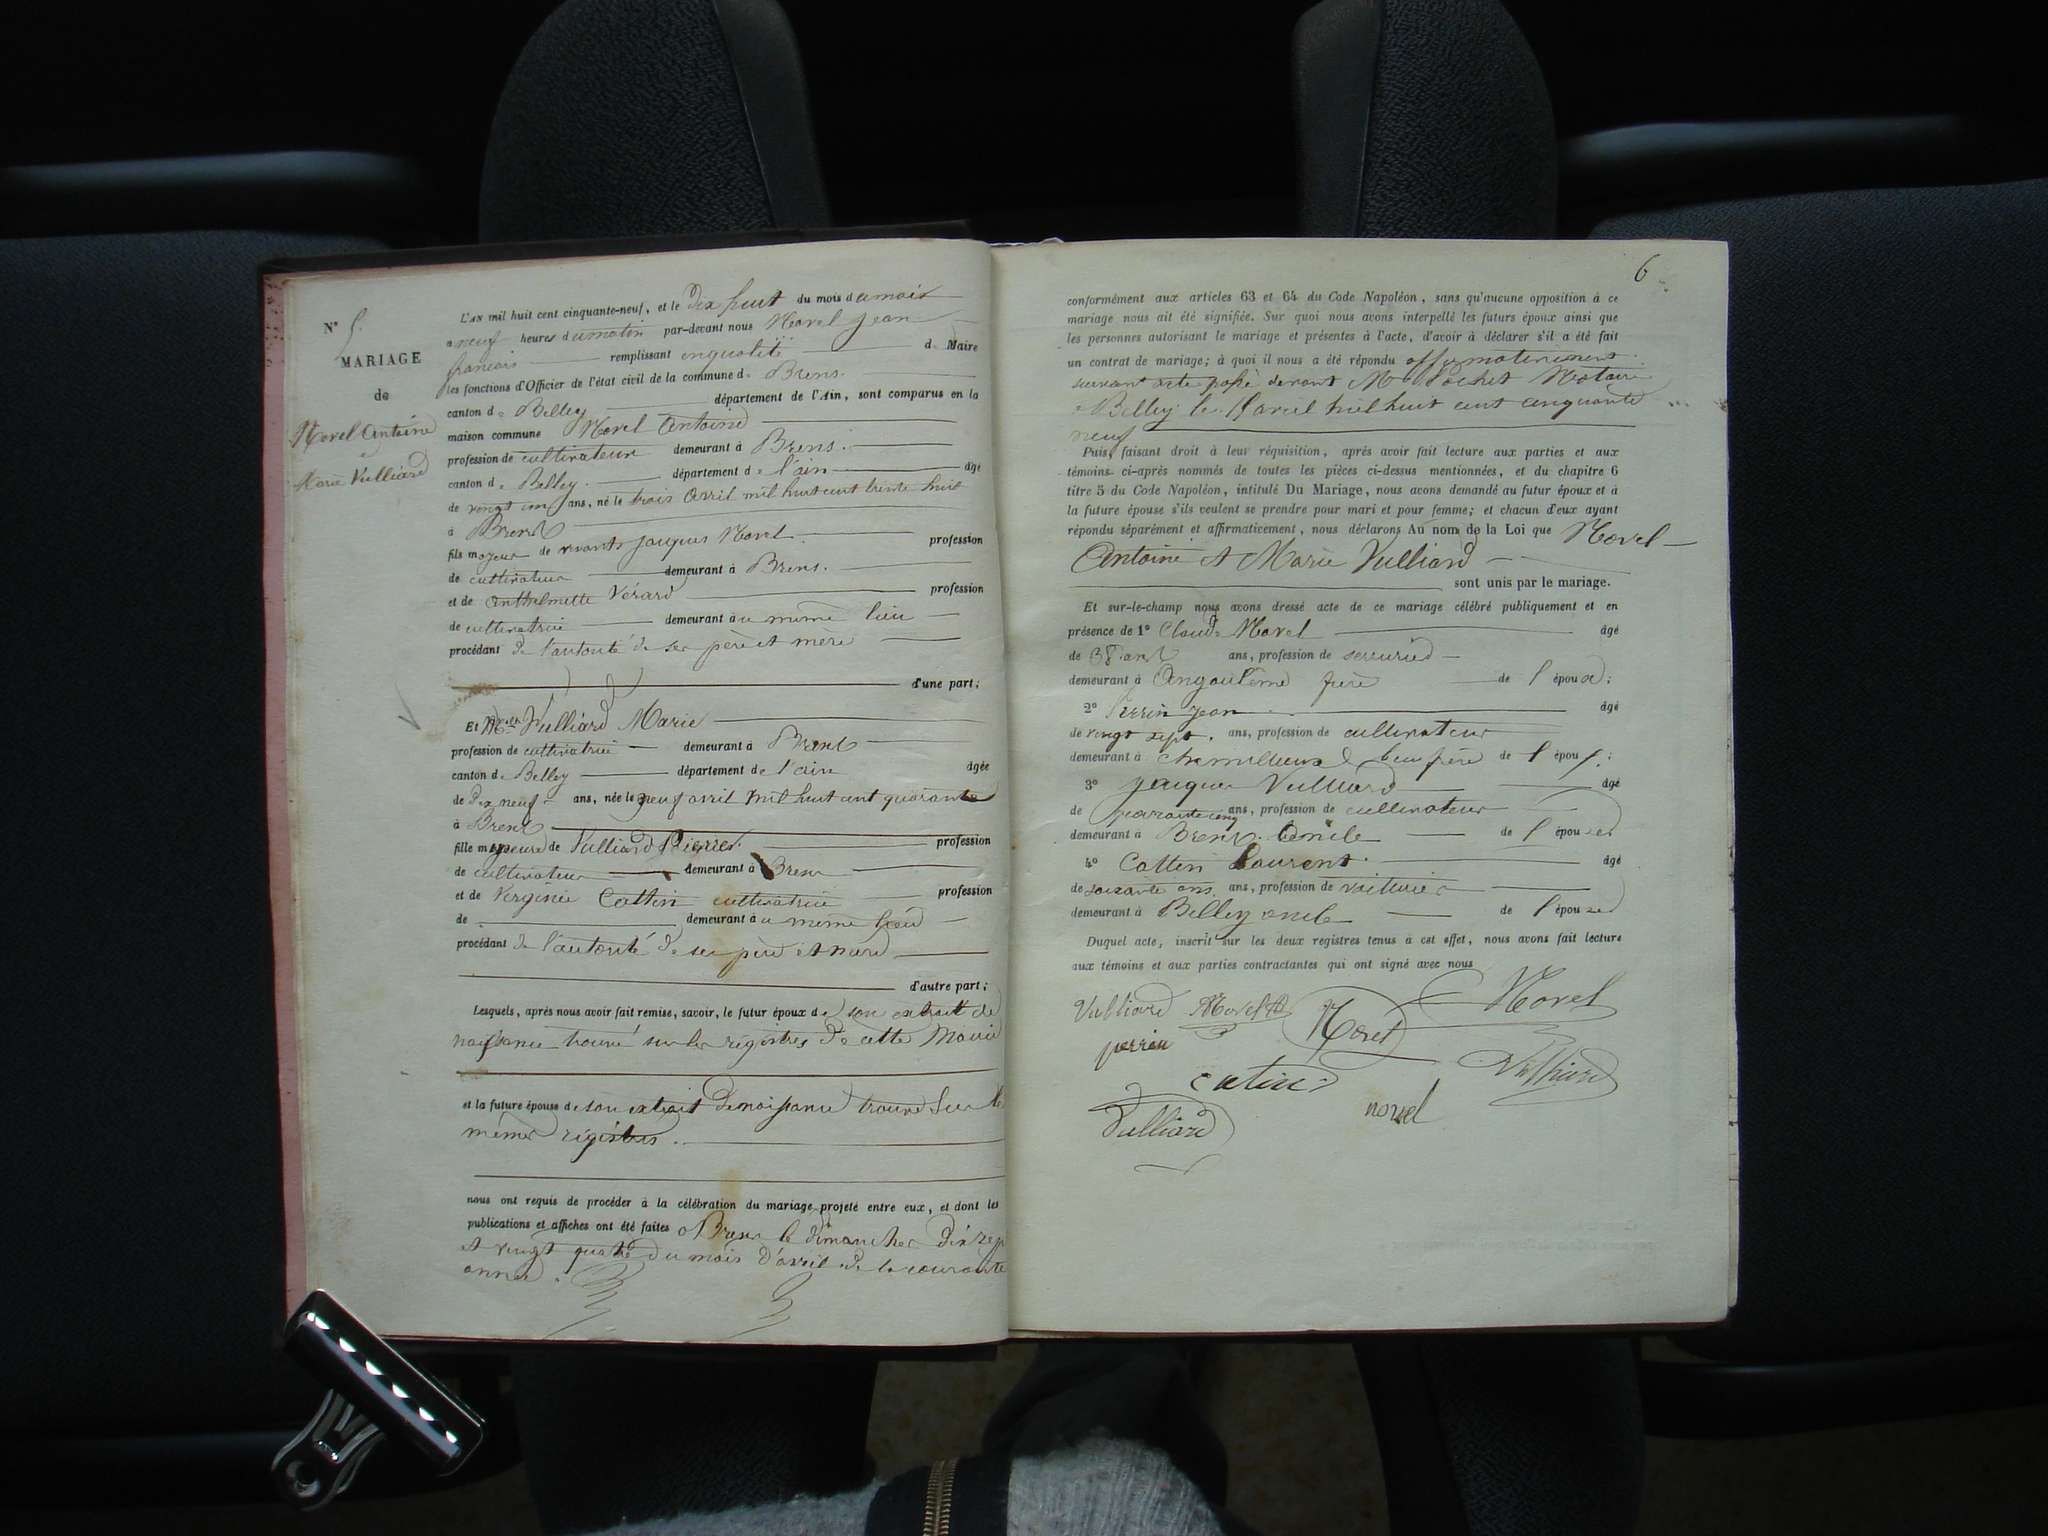 N° 5.
MARIAGE
de
Novel Antoine
et
Marie Vulliard
L'AN mil huit cent cinquante-neuf, et le dix huit du mois de mai
a neuf heures du matin par-devant nous Novel Jean
francois remplissant en qualité de Maire
les fonctions d'Officier de l'état civil de la commune de Brens
canton de Belley département de l'Ain, sont comparus en la
maison commune Novel Antoine
profession de cultivateur demeurant à Brens.
canton de Belley. département de l'ain âgé
de vingt un ans, né le trois avril mil huit cent trente huit
à Brens
fils majeur de vivants Jacques Novel. profession
de cultivateur demeurant à Brens.
et de Anthelmette Vérard profession
de cultivatrice demeurant au même lieu
procédant de l'autorité de ses père et mère
d'une part;
Et Vulliard Marie
profession de cultivatrice demeurant à Brens
canton de Belley département de l'ain âgée
de dix neuf ans, née le neuf avril mil huit cent quarante
à Brens
fille majeure de Vulliard Pierre profession
de cultivateur demeurant à Brens
et de Verginie Cattin cultivatrice profession
de demeurant au même lieu
procédant de l'autorité de ses père et mère
d'autre part;
Lesquels, après nous avoir fait remise, savoir, le futur époux de son extrait de
naissance trouvé sur les régistres de cette Mairie
et la future épouse de son extrait de naissance trouvé sur les
mêmes régistres.
nous ont requis de procéder à la célébration du mariage projeté entre eux, et dont les
publications et affiches ont été faites a Brens le dimanches dix sept
et vingt quatre du mois d'avril de la courante
année.
6
conformément aux articles 63 et 64 du Code Napoléon, sans qu'aucune opposition à ce
mariage nous ait été signifiée. Sur quoi nous avons interpellé les futurs époux ainsi que
les personnes autorisant le mariage et présentes à l'acte, d'avoir à déclarer s'il a été fait
un contrat de mariage; à quoi il nous a été répondu affirmativement
suivant acte passé devant Me Notaire
a Belley le avril mil huit cent cinquante
neuf
Puis, faisant droit à leur réquisition, après avoir fait lecture aux parties et aux
témoins ci-après nommés de toutes les pièces ci-dessus mentionnées, et du chapitre 6
titre 5 du Code Napoléon, intitulé Du Mariage, nous avons demandé au futur époux et à
la future épouse s'ils veulent se prendre pour mari et pour femme; et chacun d'eux ayant
répondu séparément et affirmativement, nous déclarons Au nom de la Loi que Novel
Antoine et Marie Vulliard
sont unis par le mariage.
Et sur-le-champ nous avons dressé acte de ce mariage célébré publiquement et en
présence de 1° Claude Novel âgé
de 38 ans ans, profession de serrurier
demeurant à Angoulême frère de l'époux;
2° Perrin Jean âgé
de vingt sept. ans, profession de cultivateur
demeurant à beau frère de l'époux;
3° Jacques Vulliard âgé
de quarante cinq ans, profession de cultivateur
demeurant à Brens. oncle de l'épouse
4° Cattin Laurent. âgé
de soixante ans ans, profession de voiturier
demeurant à Belley oncle de l'épouse
Duquel acte, inscrit sur les deux registres tenus à cet effet, nous avons fait lecture
aux témoins et aux parties contractantes qui ont signé avec nous
Vulliard Novel Novel Novel
perrin
catin Vulliard
Vulliard novel